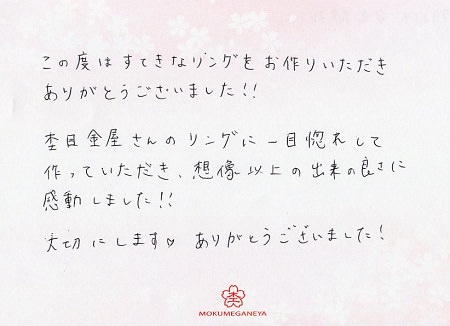 この度はすてきなリングをお作りいただき
ありがとうございました!!
杢目金屋さんのリングに一目惚れして
作っていただき、想像以上の出来の良さに
感動しました!!
大切にします♡ ありがとうございました!
杢
MOKUMEGANEYA